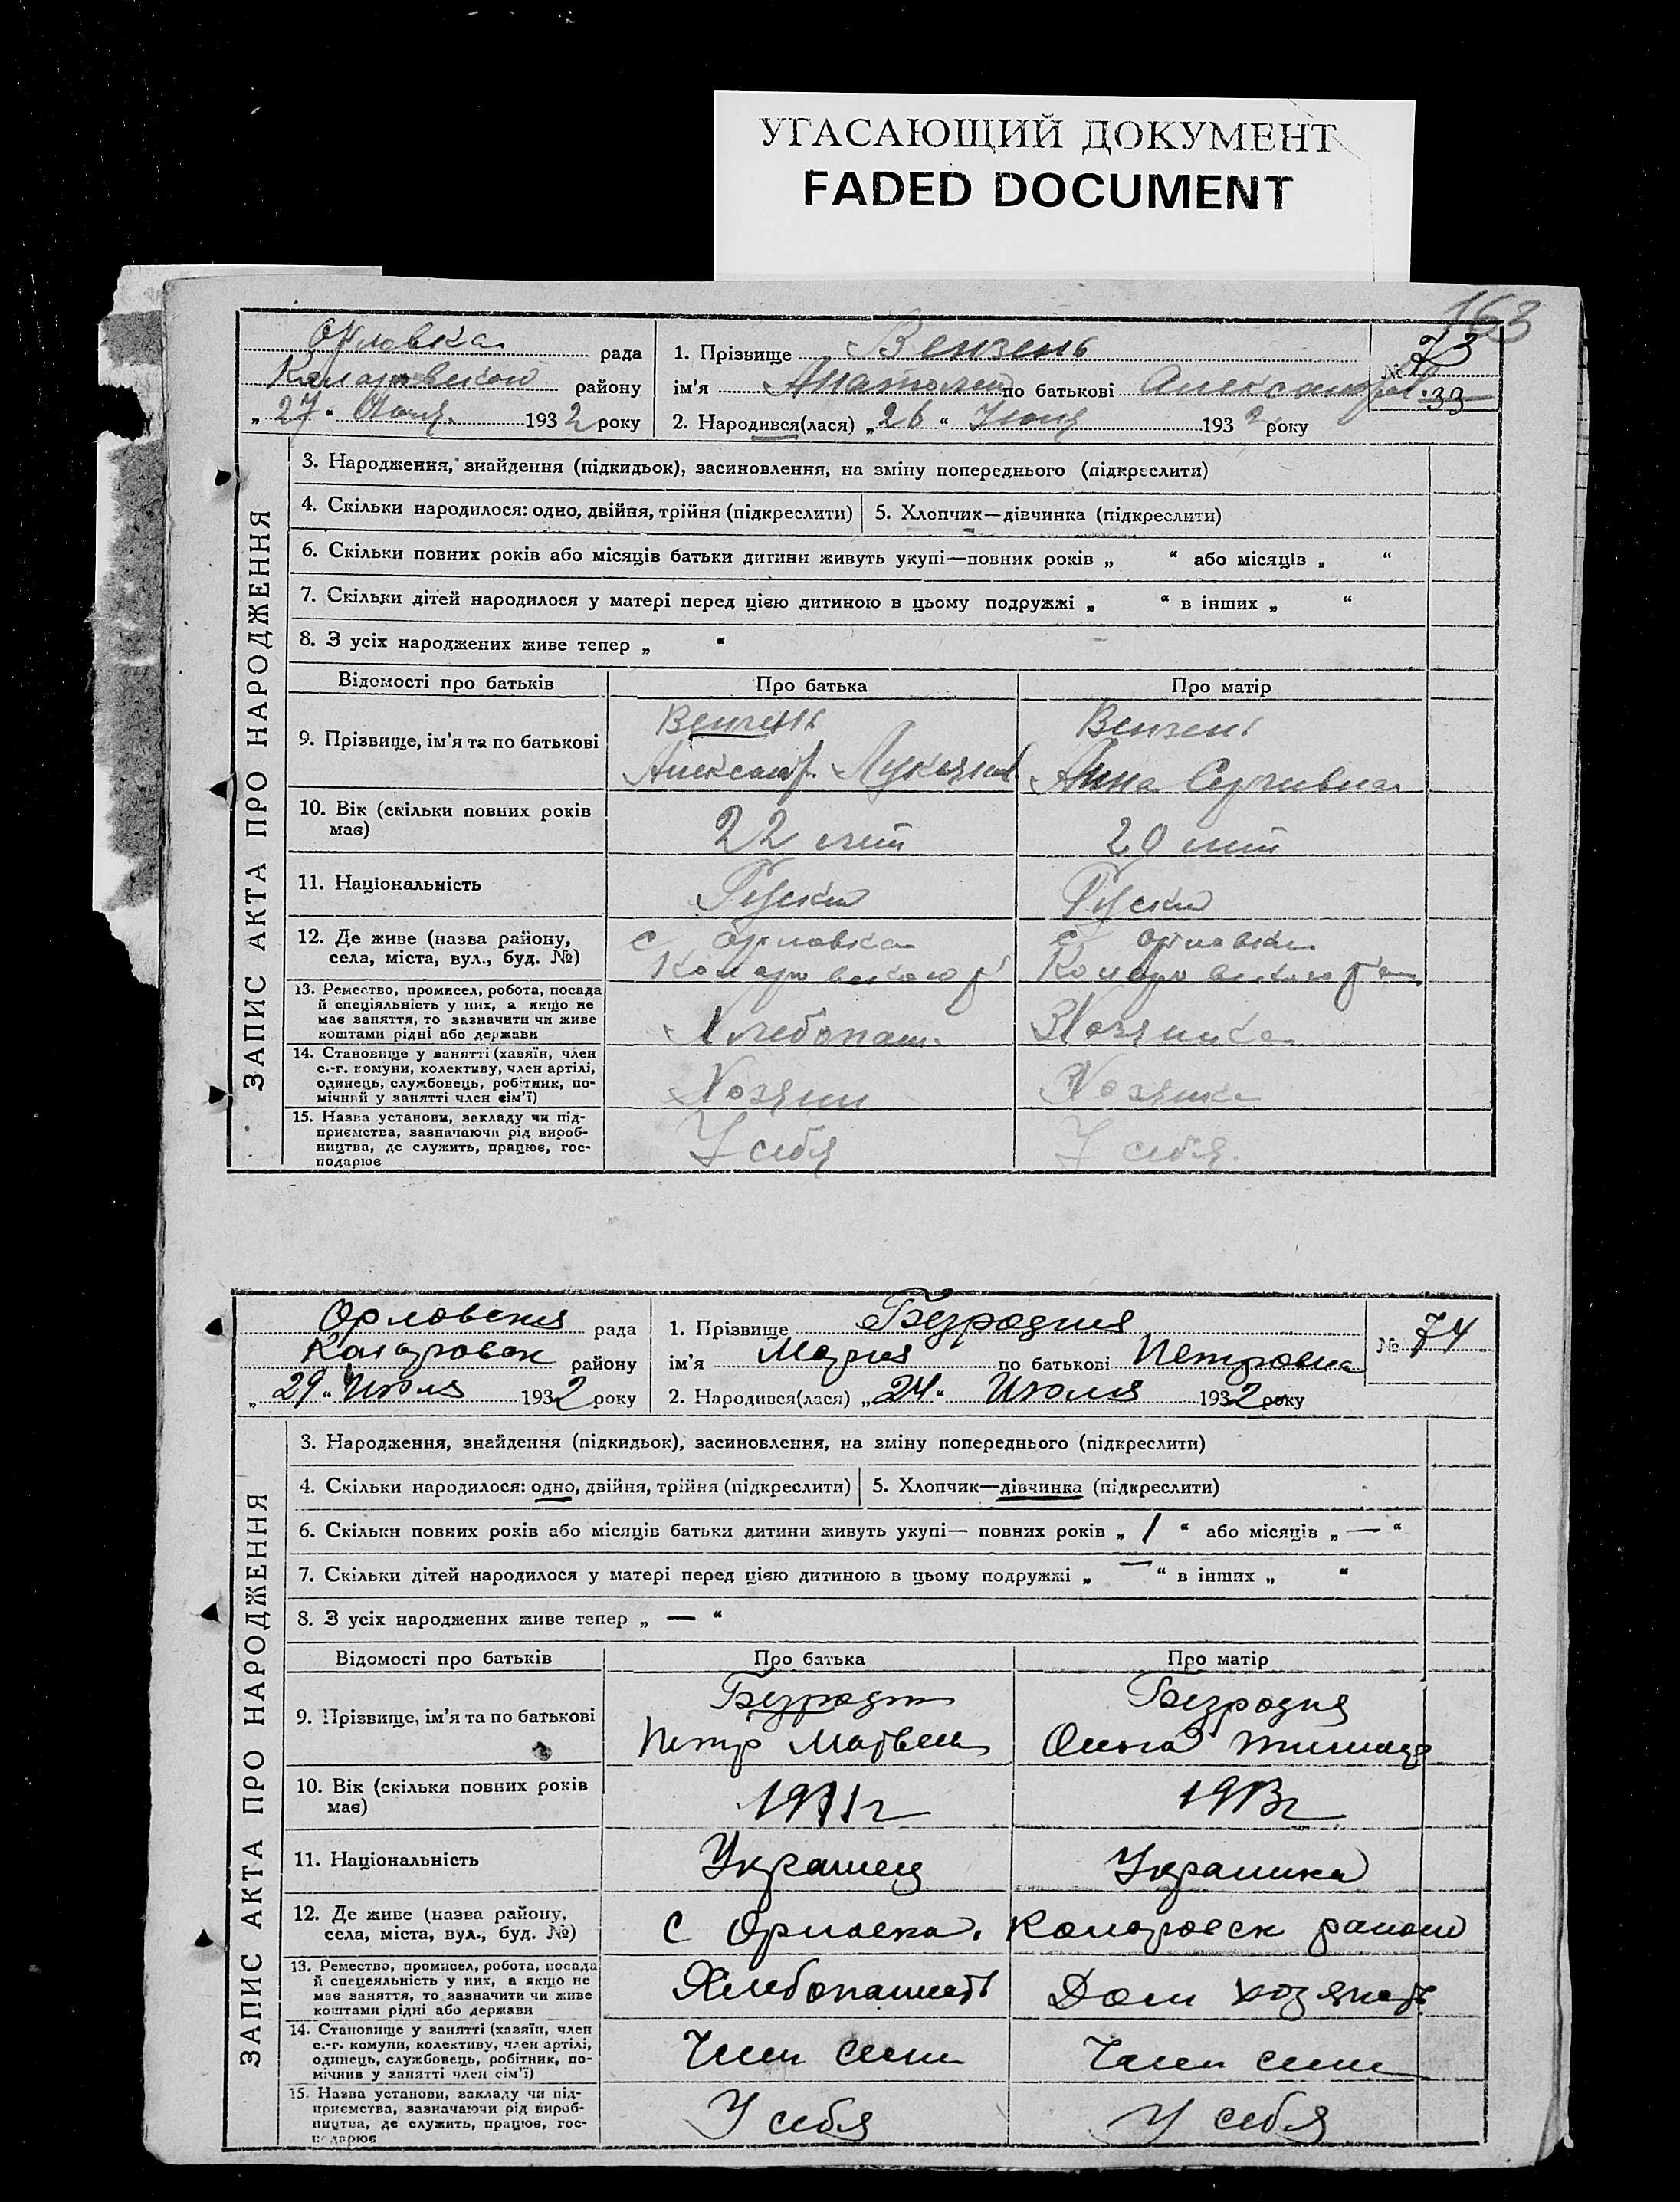 УГАСАЮЩИЙ ДОКУМЕНТ
FADED DOCUMENT
163
Орловка рада
району
„ 27 “ 1932 року
1. Прізвище Вензень
ім’я Анатолий по батькові Александров.
2. Народився(лася) „ 26 “ Июня 1932 року
№ 73
33
ЗАПИС АКТА ПРО НАРОДЖЕННЯ
3. Народження, знайдення (підкидьок), засиновлення, на зміну попереднього (підкреслити)
4. Скільки народилося: одно, двійня, трійня (підкреслити) 5. Хлопчик—дівчинка (підкреслити)
6. Скільки повних років або місяців батьки дитини живуть укупі—повних років „ “ або місяців „ “
7. Скільки дітей народилося у матері перед цією дитиною в цьому подружжі „ “ в інших „ “
8. З усіх народжених живе тепер „ “
Відомості про батьків Про батька Про матір
9. Прізвище, ім’я та по батькові
Вензень Вензень
Александр. Лукьянов. Анна Сергивна
10. Вік (скільки повних років
має)
22 лет 20 лет
11. Національність Руски Руски
12. Де живе (назва району,
села, міста, вул., буд. №)
с Орловка с Орловка
Комаровского р Комаровского р
13. Ремество, промисел, робота, посада
й спеціяльність у них, а якщо не
має заняття, то зазначити чи живе
коштами рідні або держави
Хлебопаш. Хозяика
14. Становище у занятті (хазяїн, член
с.-г. комуни, колективу, член артілі,
одинець, службовець, робітник, по-
мічний у занятті член сім’ї)
Хозяин Хозяика
15. Назва установи, закладу чи під-
приємства, зазначаючи рід вироб-
ництва, де служить, працює, гос-
подарює
У себя У себя.
Орловская рада
району
„ 29 “ Июля 1932 року
1. Прізвище Безродня
ім’я Мария по батькові Петровна
2. Народився(лася) „ 24 “ Июля 1932 року
№ 74
ЗАПИС АКТА ПРО НАРОДЖЕННЯ
3. Народження, знайдення (підкидьок), засиновлення, на зміну попереднього (підкреслити)
4. Скільки народилося: одно, двійня, трійня (підкреслити) 5. Хлопчик—дівчинка (підкреслити)
6. Скільки повних років або місяців батьки дитини живуть укупі— повних років „ 1 “ або місяців „ — “
7. Скільки дітей народилося у матері перед цією дитиною в цьому подружжі „ — “ в інших „ “
8. З усіх народжених живе тепер „ — “
Відомості про батьків Про батька Про матір
9. Прізвище, ім’я та по батькові
Безродни Безродня
Петр Матвеев Ольга
10. Вік (скільки повних років
має)
1911г 1913г
11. Національність Украинец Украинка
12. Де живе (назва району,
села, міста, вул., буд. №)
с Орловка. Комаровск район
13. Ремество, промисел, робота, посада
й спецеяльність у них, а якщо не
має заняття, то зазначити чи живе
коштами рідні або держави
Хлебопашеств Дом хозяйств
14. Становище у занятті (хазяїн, член
с.-г. комуни, колективу, член артілі,
одинець, службовець, робітник, по-
мічнив у занятті член сім’ї)
Член семи Член семи
15. Назва установи, закладу чи під-
приємства, зазначаючи рід вироб-
ництва, де служить, працює, гос-
подарює
У себя У себя